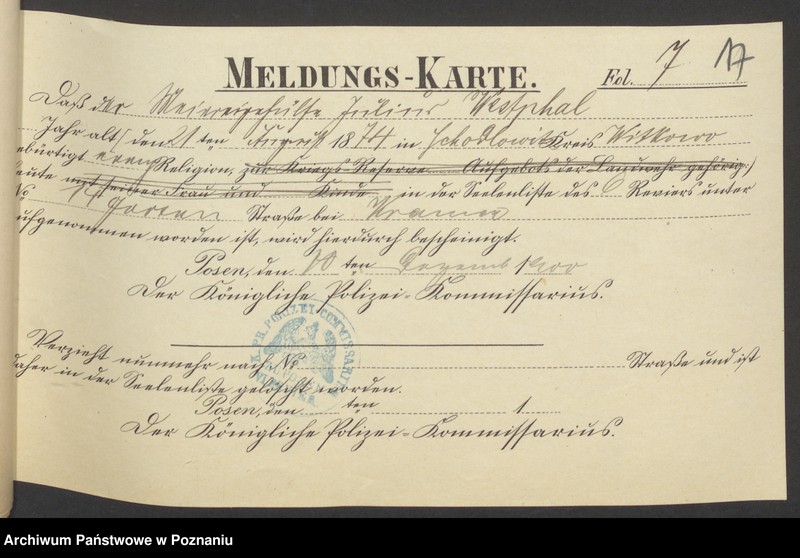 MELDUNGS-KARTE.
Fol. 7 17
Daß der Meiereigehülfe Julius Westphal
Jahr alt / den 21 ten August 1874 in Kreis Witkowo
ebürtigt evang Religion, zur Kriegs-Reserve Aufgebots der Landwehr gehörig /
eute nebst seiner Frau und Kinde in der Seelenliste des 6 Reviers unter
No Garten Straße bei Kramer
ufgenommen worden ist, wird hierdurch bescheinigt.
Posen, den 10 ten Dezemb 1900
Der Königliche Polizei-Kommissarius.
K. PR. POLIZEI-COMMISSARIUS
Verzieht nunmehr nach No Straße und ist
daher in der Seelenliste gelöscht worden.
Posen, den ten 1
Der Königliche Polizei-Kommissarius.
Archiwum Państwowe w Poznaniu